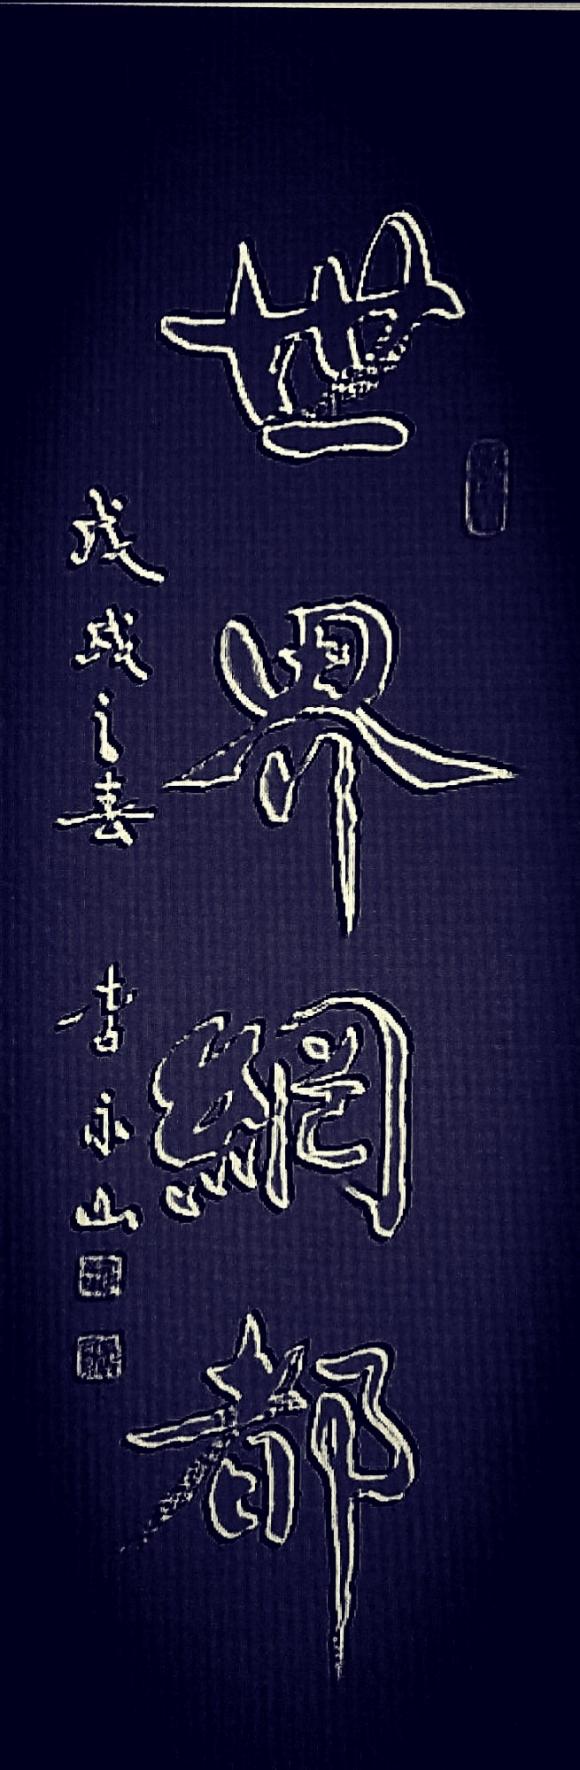 世界網都
戊戌之春 李永山